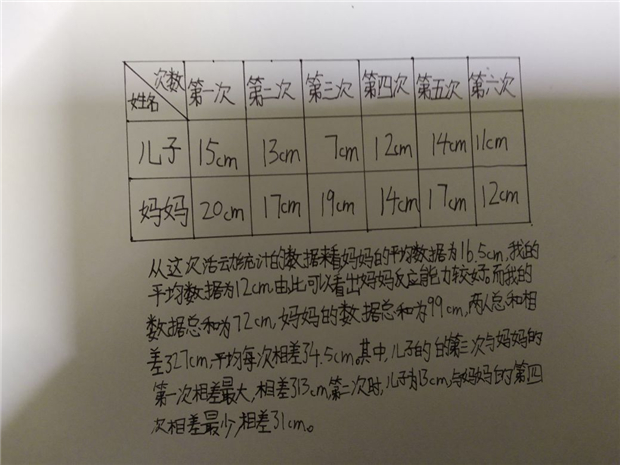 次数 姓名 第一次 第二次 第三次 第四次 第五次 第六次
儿子 15cm 13cm 7cm 12cm 14cm 11cm
妈妈 20cm 17cm 19cm 14cm 17cm 12cm
从这次活动统计的数据来看妈妈的平均数据为16.5cm,我的
平均数据为12cm.由此可以看出妈妈反应能力较好。而我的
数据总和为72cm,妈妈的数据总和为99cm,两人总和相
差了27cm,平均每次相差了4.5cm。其中,儿子的的第三次与妈妈的
第一次相差最大,相差了13cm,第二次时,儿子为13cm,与妈妈的第四
次相差最少,相差了1cm。